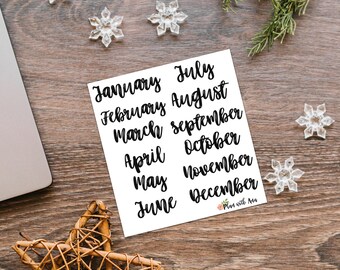 January
February
March
April
May
June
July
August
September
October
November
December
Plan with Ana